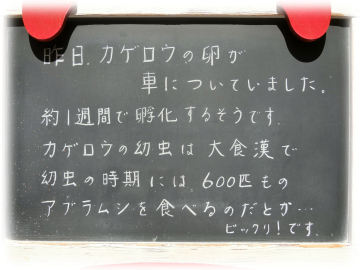 昨日、カゲロウの卵が
車についていました。
約1週間で孵化するそうです。
カゲロウの幼虫は大食漢で
幼虫の時期には、600匹もの
アブラムシを食べるのだとか…
ビックリ!です。